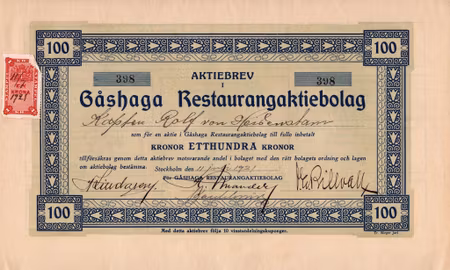 100 100
398 398
AKTIEBREV
I
Gåshaga Restaurangaktiebolag
Kapten Rolf von Heidenstam
som för en aktie i Gåshaga Restaurangaktiebolag till fullo inbetalt
KRONOR ETTHUNDRA KRONOR
tillförsäkras genom detta aktiebrev motsvarande andel i bolaget med den rätt bolagets ordning och lagen
om aktiebolag bestämma.
Stockholm den 11 1921
För GÅSHAGA RESTAURANGAKTIEBOLAG
100 100
Med detta aktiebrev följa 10 vinstandelningskuponger.
1921